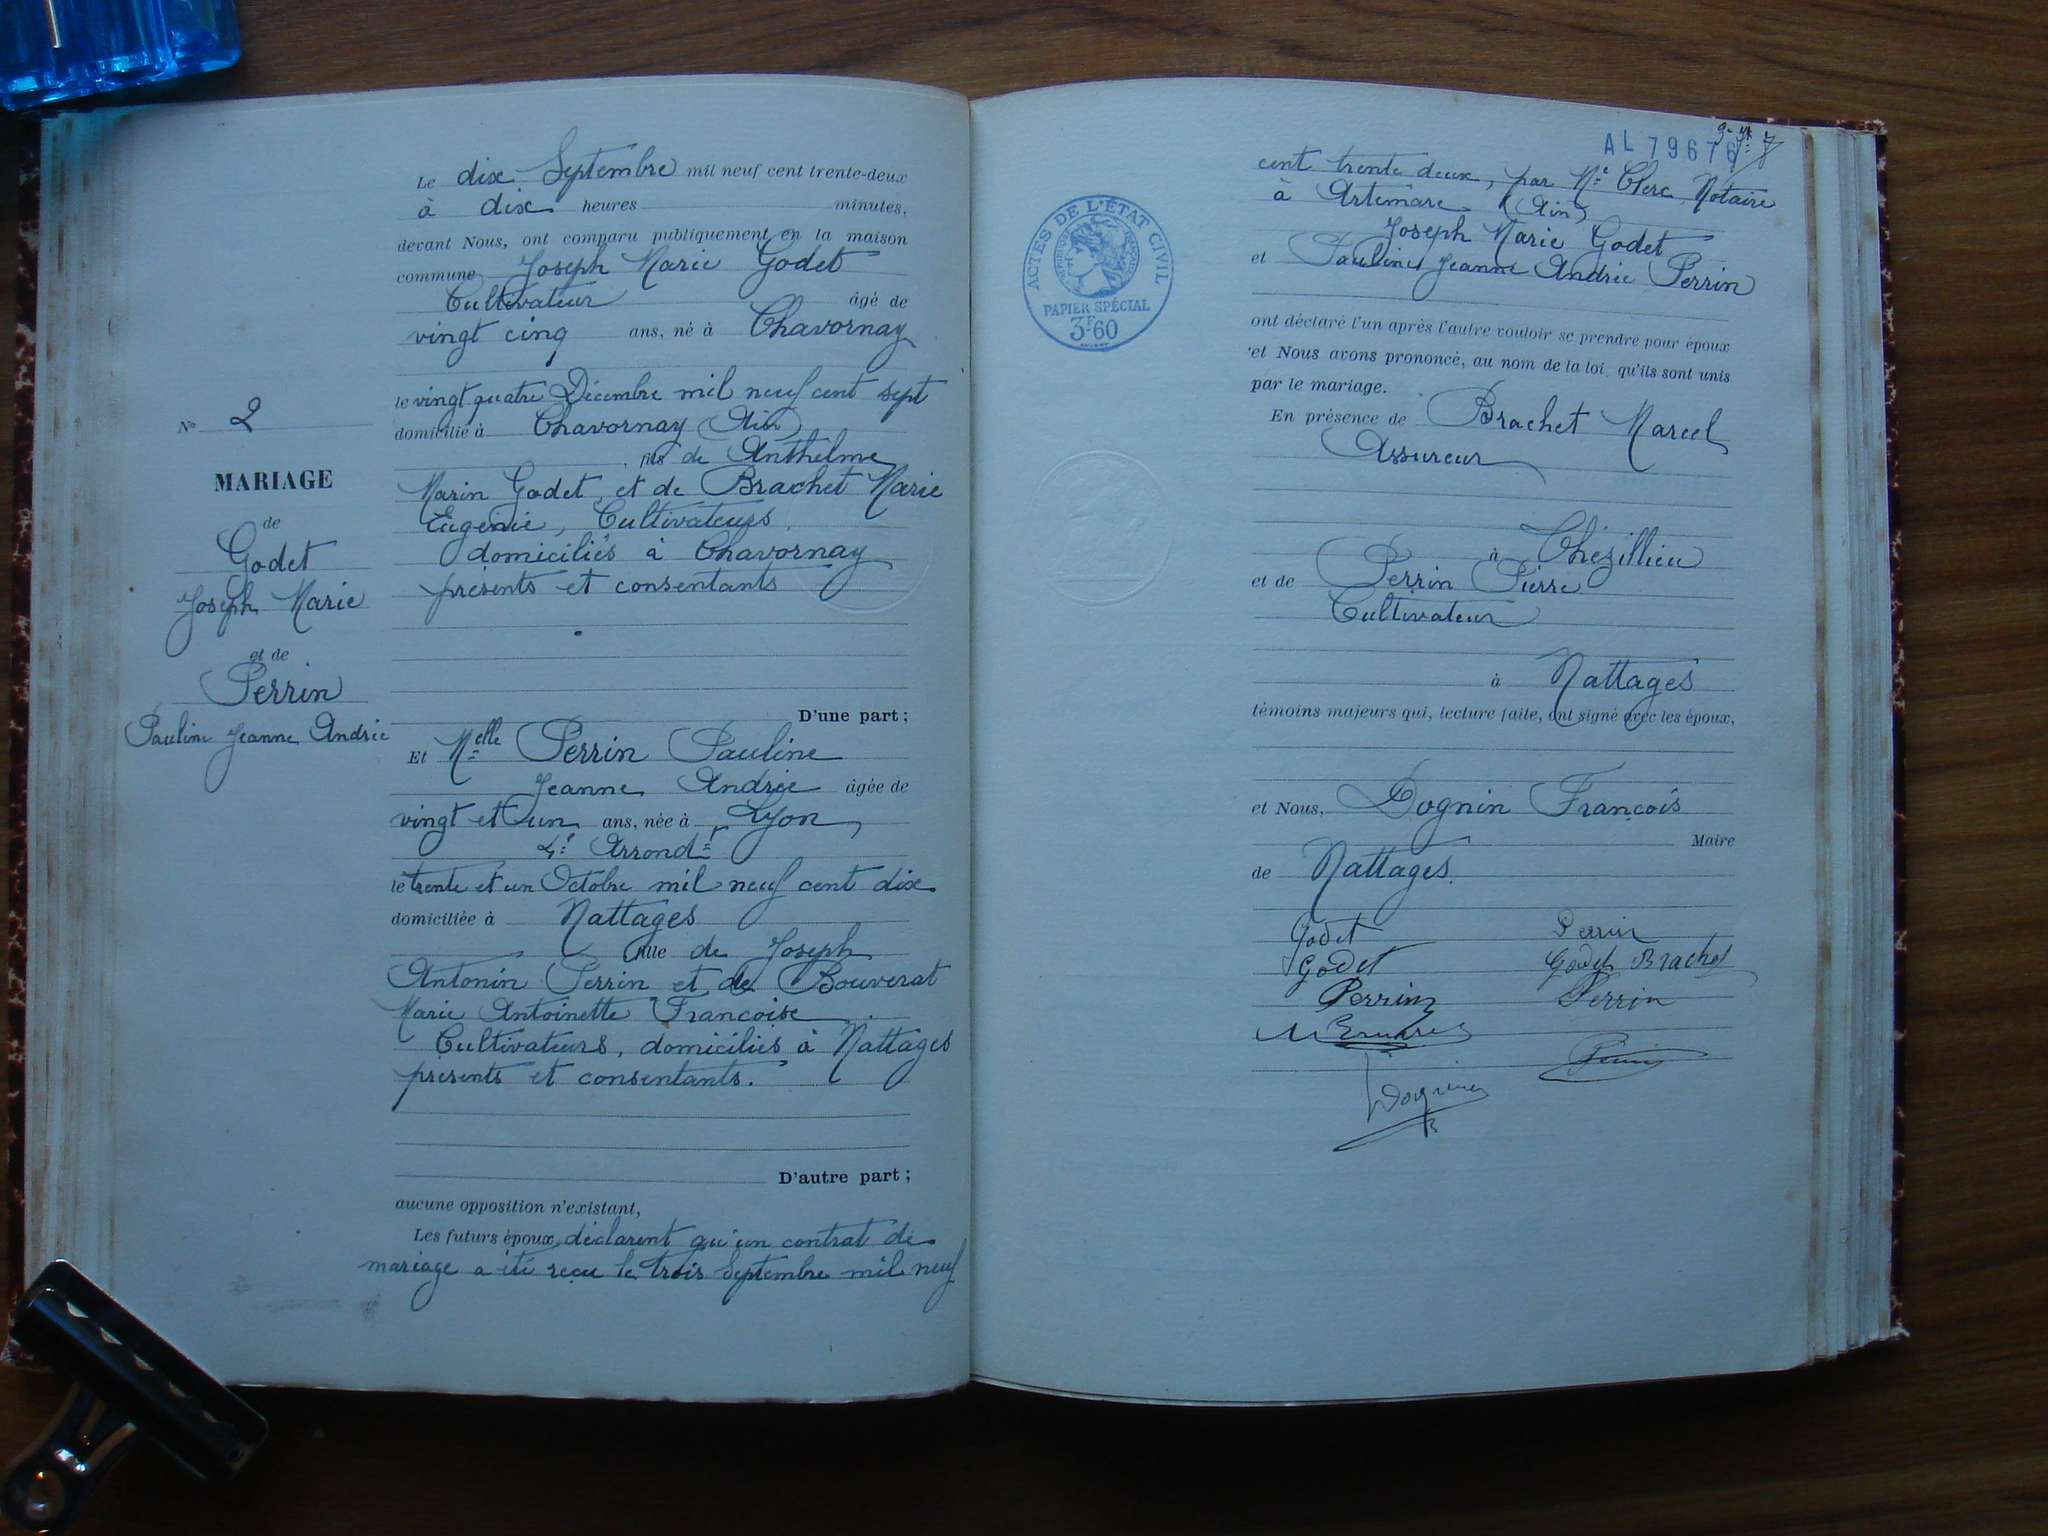 N° 2
MARIAGE
de
Godet
Joseph Marie
et de
Perrin
Pauline Jeanne Andrée
Le dix Septembre mil neuf cent trente-deux
à dix heures minutes,
devant Nous, ont comparu publiquement en la maison
commune Joseph Marie Godet
Cultivateur âgé de
vingt cinq ans, né à Chavornay
le vingt quatre Décembre mil neuf cent sept
domicilié à Chavornay (Ain)
fils de Anthelme
Marin Godet, et de Brachet Marie
Eugénie, Cultivateurs,
domiciliés à Chavornay
présents et consentants
D'une part ;
Et Melle Perrin Pauline
Jeanne Andrée âgée de
vingt et un ans, née à Lyon,
4e Arrondt
le trente et un Octobre mil neuf cent dix
domiciliée à Nattages
fille de Joseph
Antonin Perrin et de Bouverat
Marie Antoinette Françoise
Cultivateurs, domiciliés à Nattages
présents et consentants.
D'autre part ;
aucune opposition n'existant,
Les futurs époux déclarent qu'un contrat de
mariage a été reçu le trois Septembre mil neuf
AL 79676
cent trente deux, par Me Clerc Notaire
à Artemare (Ain)
Joseph Marie Godet
et Pauline Jeanne Andrée Perrin
ACTES DE L'ÉTAT CIVIL
PAPIER SPÉCIAL
3F60
ont déclaré l'un après l'autre vouloir se prendre pour époux
et Nous avons prononcé, au nom de la loi, qu'ils sont unis
par le mariage.
En présence de Brachet Marcel
Assureur
à Chézillieu
et de Perrin Pierre
Cultivateur
à Nattages
témoins majeurs qui, lecture faite, ont signé avec les époux,
et Nous, Dognin François
Maire
de Nattages.
Godet Perrin
Godet Godet Brachet
Perrin Perrin
Dognin